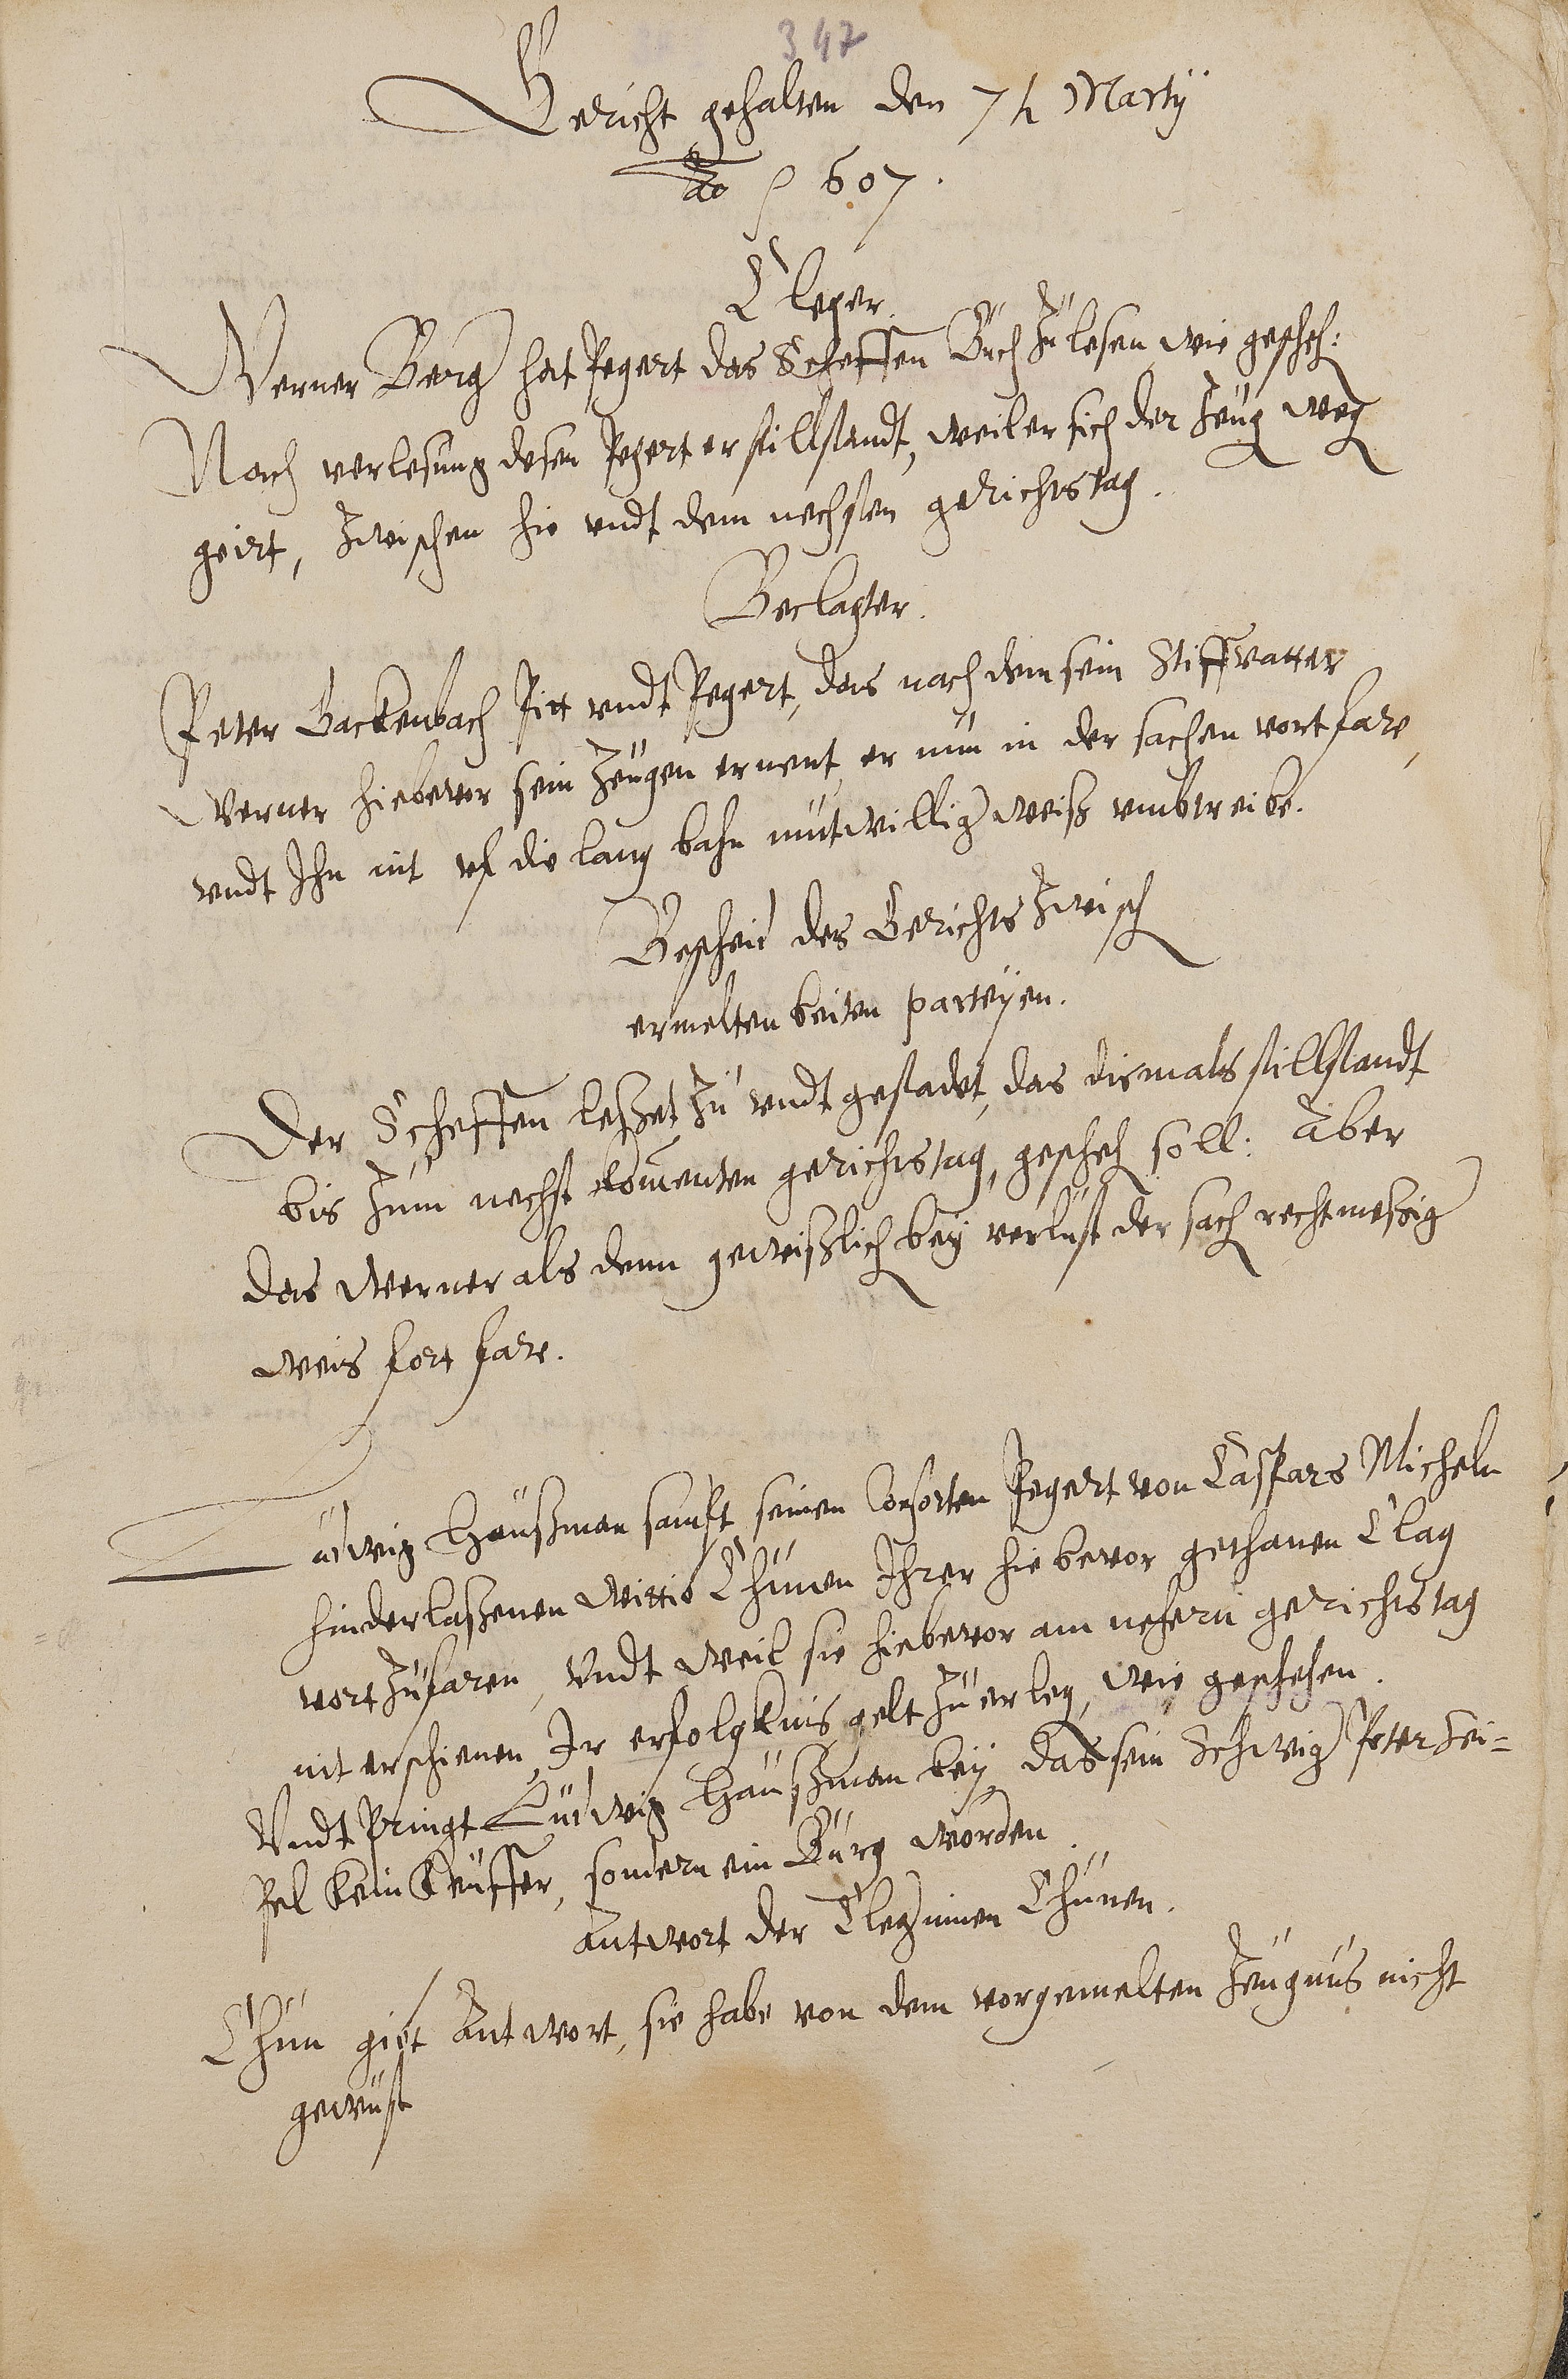 347
Gericht gehalten den 7 h Martÿ
Ao 1607.
Cleger.
Werner Berg hat pegert das Scheffen Buch zu lesen wie gescheh:
Nach verlesung desen pegert er stillstandt, weil er sich der Zeug weg
geirt, Zwischen hie vndt dem nechsten gerichtstag.
Beclagter.
Peter Backenbach pitt vndt pegert, das nach dem sein Stiffvatter
Werner hiebevor sein Zeugen ernent, er nun in der sachen vort fare,
vndt Ihn nit vf die lang bahn mutwillig weiß vmbtreibe.
Bescheid des Gerichts Zwisch
ermelten beiden parteÿen.
Der Scheffen leßet zu vndt gestadet, das dismals stillstandt
bis zum nechst komenden gerichtstag, gescheh soll: Aber
das Werner als denn gewißlich beÿ verlust der sach rechtmeßig
weis fort fare.
Ludwig Haußman sampt seinen Consorten pegert von Caspars Micheln
hinderlaßenen Wittib Chünen Ihrer hiebevor gethanen Clag
vort zufaren, Vndt weil sie hiebevor am nehern gerichtstag
nit erschienen, Ir erfolgknis gelt zu erleg, wie geschehen.
Vndt pringt Ludwig Haußman beÿ das sein Schwig Peter Sei=
pel kein Keuffer, sondern ein Bürg worden.
Antwort der Cleginnen Chünen.
Chün gibt Antwort, sie habe von dem vorgemelten Zeugnus nicht
gewust